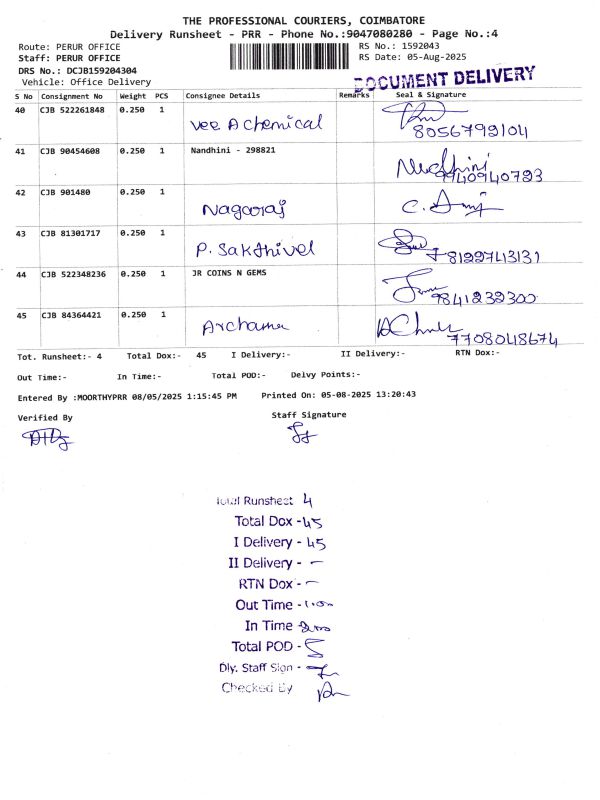 THE PROFESSIONAL COURIERS, COIMBATORE
Delivery Runsheet - PRR - Phone No.:9047080280 - Page No.:4
Route: PERUR OFFICE RS No.: 1592043
Staff: PERUR OFFICE RS Date: 05-Aug-2025
DRS No.: DCJB159204304
Vehicle: Office Delivery DOCUMENT DELIVERY
S No Consignment No Weight PCS Consignee Details Remarks Seal & Signature
40 CJB 522261848 0.250 1 Vee A chemical 8056792104
41 CJB 90454608 0.250 1 Nandhini - 298821
42 CJB 901480 0.250 1 Nagaraj
43 CJB 81301717 0.250 1 P. Sakthivel 8122743131
44 CJB 522348236 0.250 1 JR COINS N GEMS 9841232300
45 CJB 84364421 0.250 1 Archana 7708048674
Tot. Runsheet:- 4 Total Dox:- 45 I Delivery:- II Delivery:- RTN Dox:-
Out Time:- In Time:- Total POD:- Delvy Points:-
Entered By :MOORTHYPRR 08/05/2025 1:15:45 PM Printed On: 05-08-2025 13:20:43
Verified By Staff Signature
Total Runsheet 4
Total Dox - 45
I Delivery - 45
II Delivery - -
RTN Dox - -
Out Time -
In Time
Total POD -
Dly. Staff Sign -
Checked By